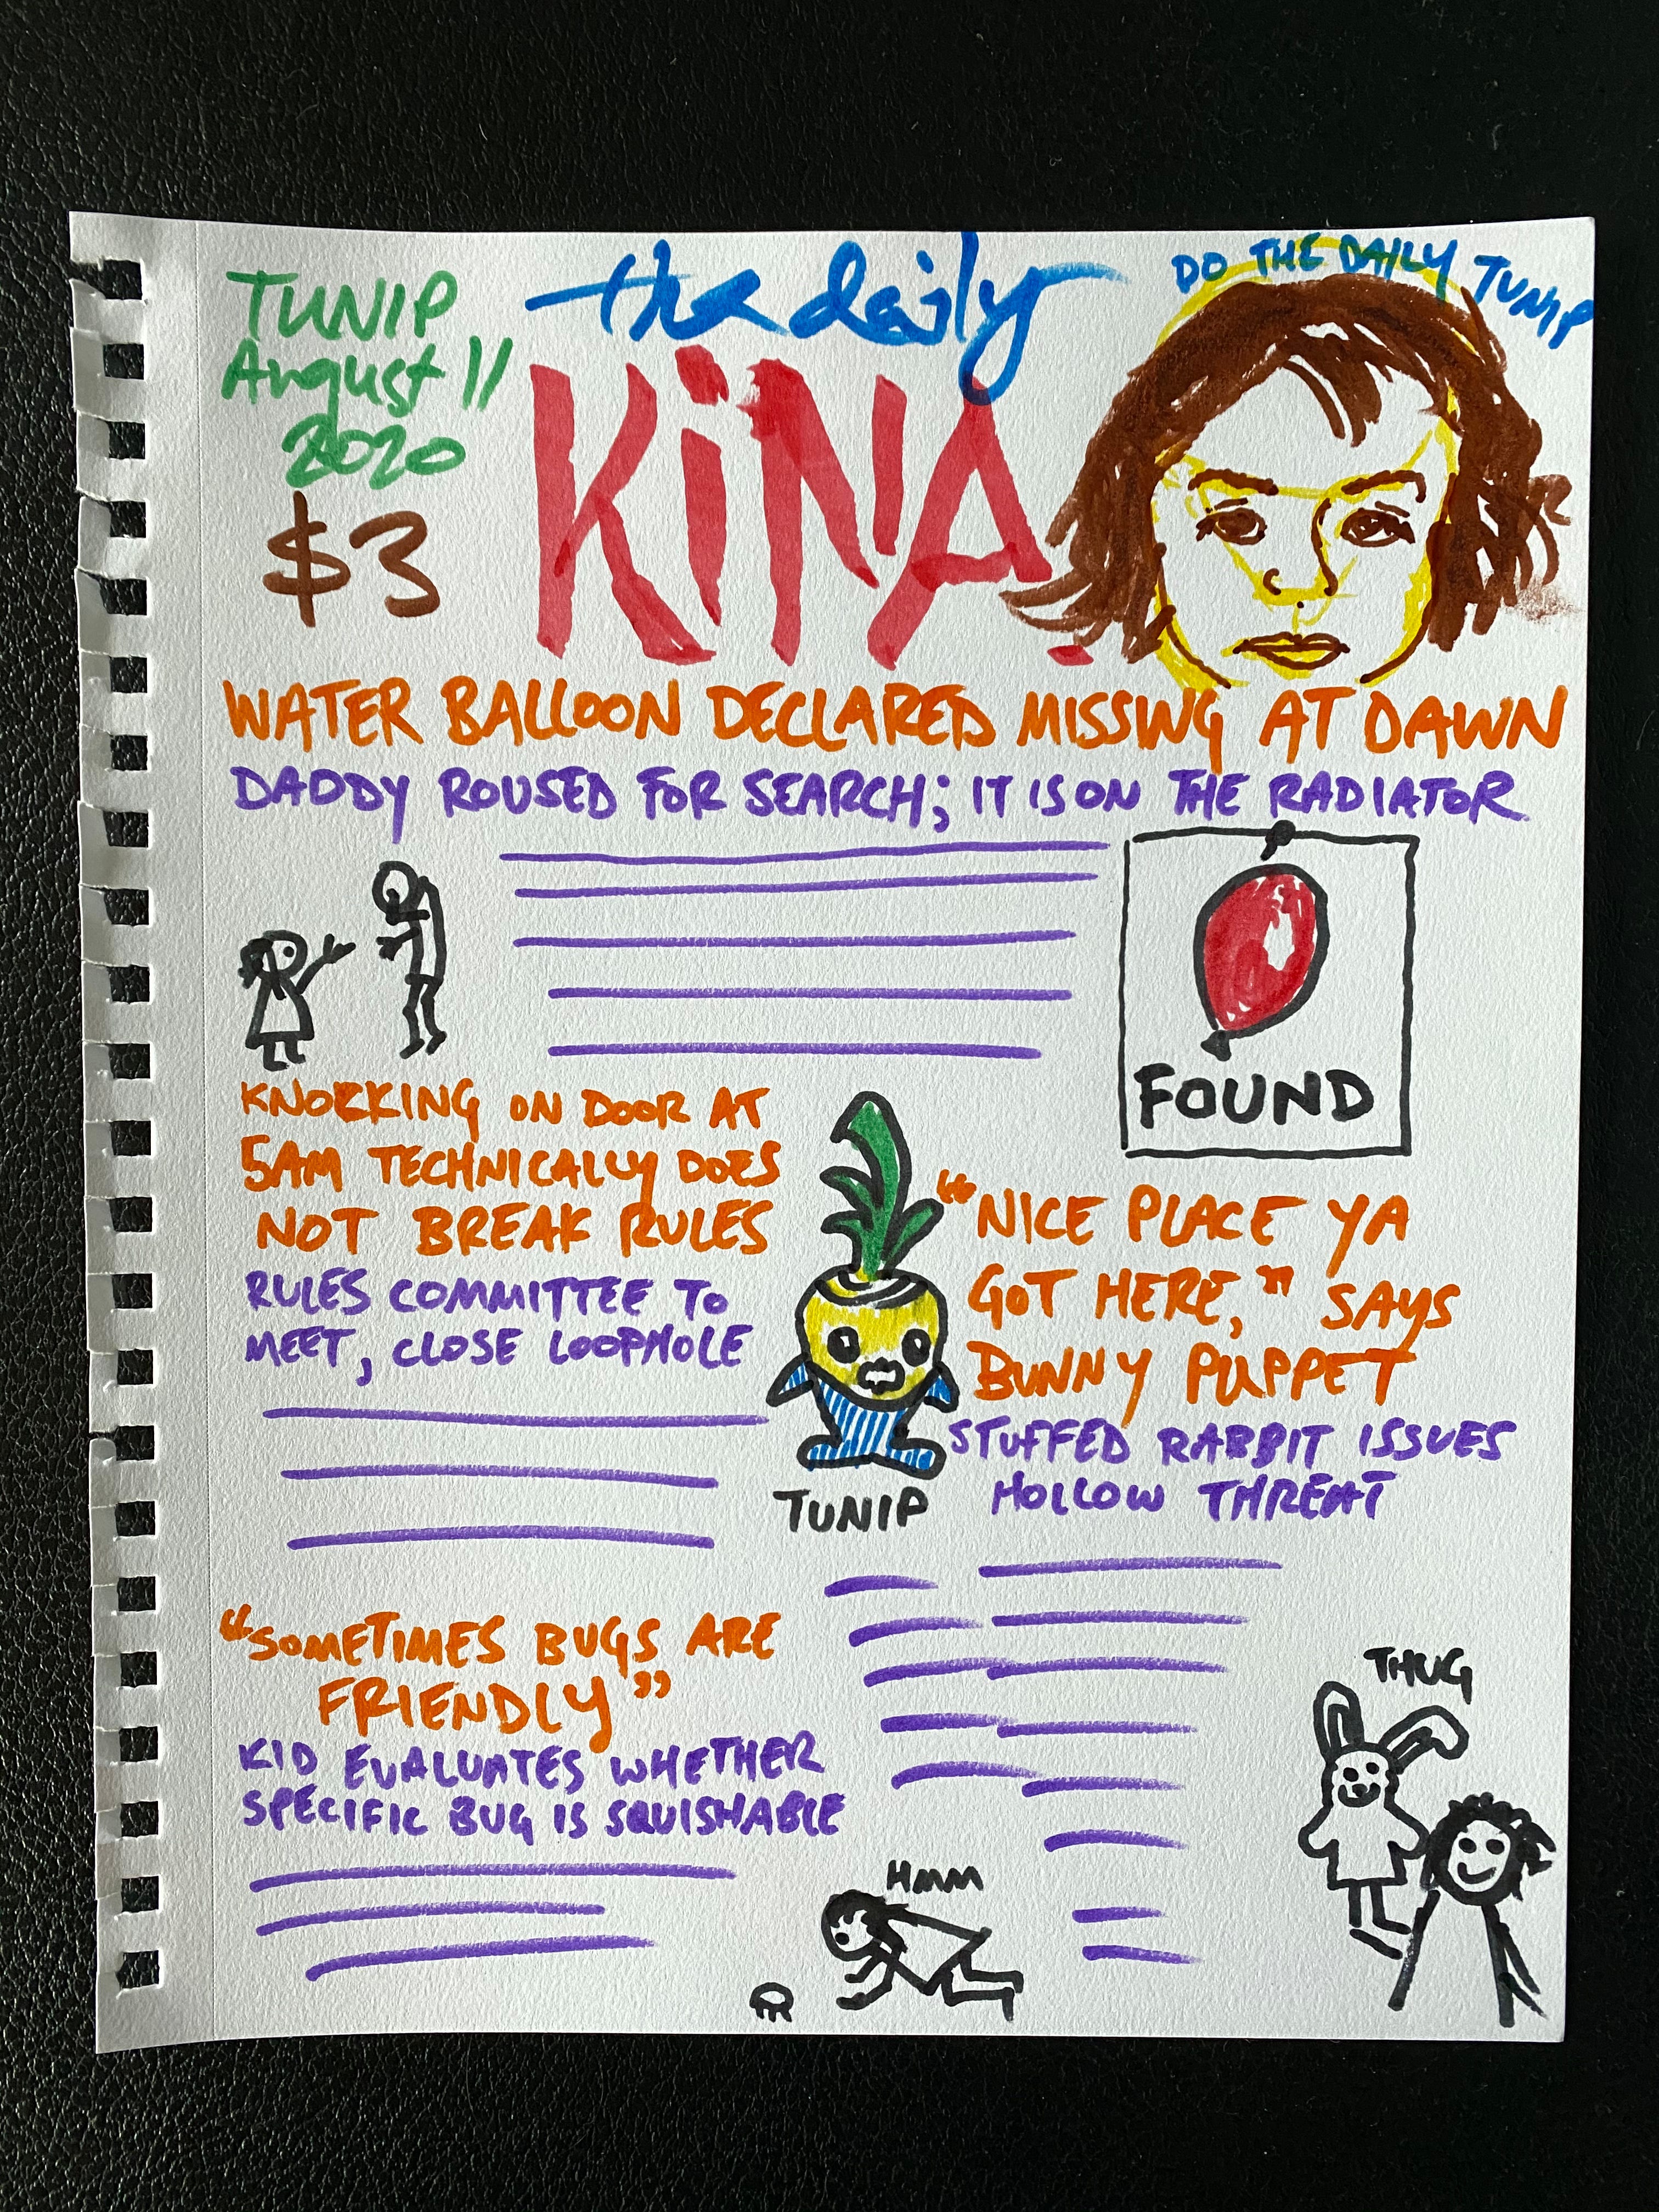 TUNIP
August 11
2020
$3
the daily
KiNA
DO THE DAILY TUNIP
WATER BALLOON DECLARED MISSING AT DAWN
DADDY ROUSED FOR SEARCH; IT IS ON THE RADIATOR
FOUND
KNORKING ON DOOR AT
5AM TECHNICALLY DOES
NOT BREAK RULES
RULES COMMITTEE TO
MEET, CLOSE LOOPHOLE
TUNIP
"NICE PLACE YA
GOT HERE," SAYS
BUNNY PUPPET
STUFFED RABBIT ISSUES
HOLLOW THREAT
"SOMETIMES BUGS ARE
FRIENDLY"
KID EVALUATES WHETHER
SPECIFIC BUG IS SQUISHABLE
HMM
THUG